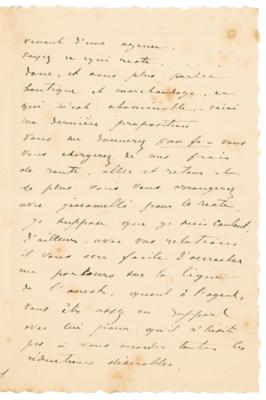 venant d'une agence.
Voyez ce qui reste......
Donc, et sans plus parler
boutique et marchandage, ce
qui m'est abominable, voici
ma dernière proposition.
Vous me donnerez 500 fr - vous
vous chargerez de nos frais
de route, aller et retour et
de plus vous vous arrangerez
avec pour le reste.
Je suppose que je suis content.
D'ailleurs, avec vos relations
il vous sera facile d'arracher
un parcours sur la ligne
de l'ouest, quant à l'agent,
vous êtes assez en rapport
avec lui pour qu'il n'hésite
pas à vous accorder toutes les
réductions désirables.